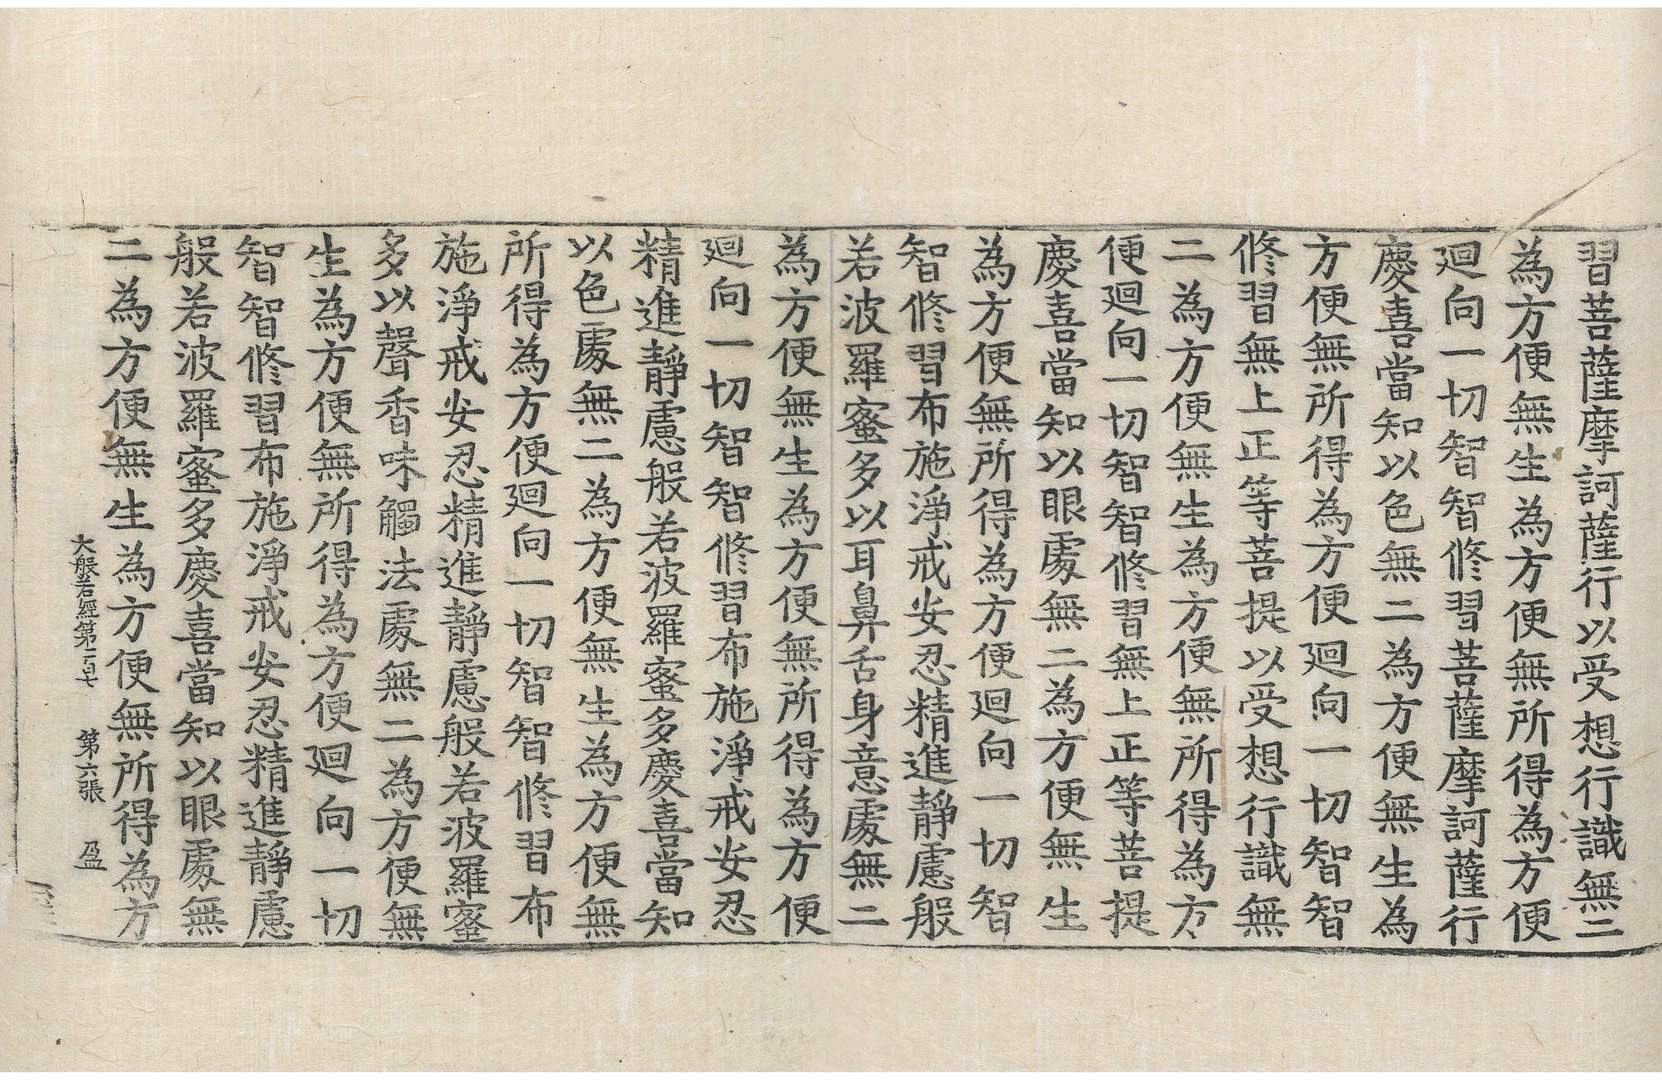 習菩薩摩訶薩行以受想行識無二
為方便無生為方便無所得為方便
迴向一切智智修習菩薩摩訶薩行
慶喜當知以色無二為方便無生為
方便無所得為方便迴向一切智智
修習無上正等菩提以受想行識無
二為方便無生為方便無所得為方
便迴向一切智智修習無上正等菩提
慶喜當知以眼處無二為方便無生
為方便無所得為方便迴向一切智
智修習布施淨戒安忍精進靜慮般
若波羅蜜多以耳鼻舌身意處無二
為方便無生為方便無所得為方便
迴向一切智智修習布施淨戒安忍
精進靜慮般若波羅蜜多慶喜當知
以色處無二為方便無生為方便無
所得為方便迴向一切智智修習布
施淨戒安忍精進靜慮般若波羅蜜
多以聲香味觸法處無二為方便無
生為方便無所得為方便迴向一切
智智修習布施淨戒安忍精進靜慮
般若波羅蜜多慶喜當知以眼處無
二為方便無生為方便無所得為方
大般若經第一百七 第六張 盈